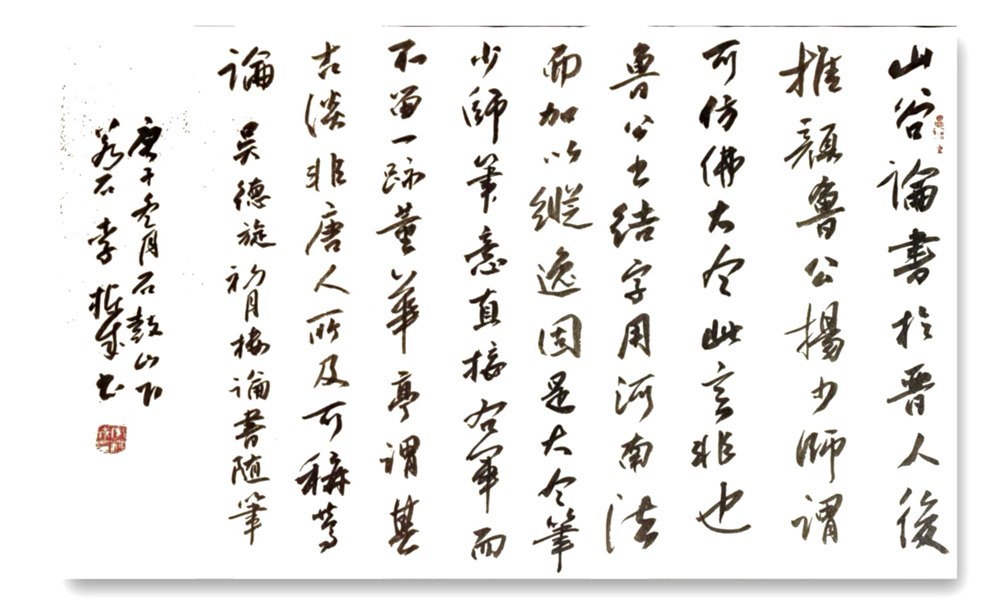 山谷論書於晉人後
推顏魯公揚少師謂
可仿佛大令此言非也
魯公書結字用河南法
而加以縱逸固是大令筆
少師筆意直接右軍而
不留一跡董華亭謂其
古淡非唐人所及可稱篤
論 吳德旋初月樓論書随筆
庚子冬月石鼓山下
若石 李